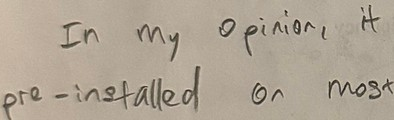 In my opinion, it
pre-installed on most